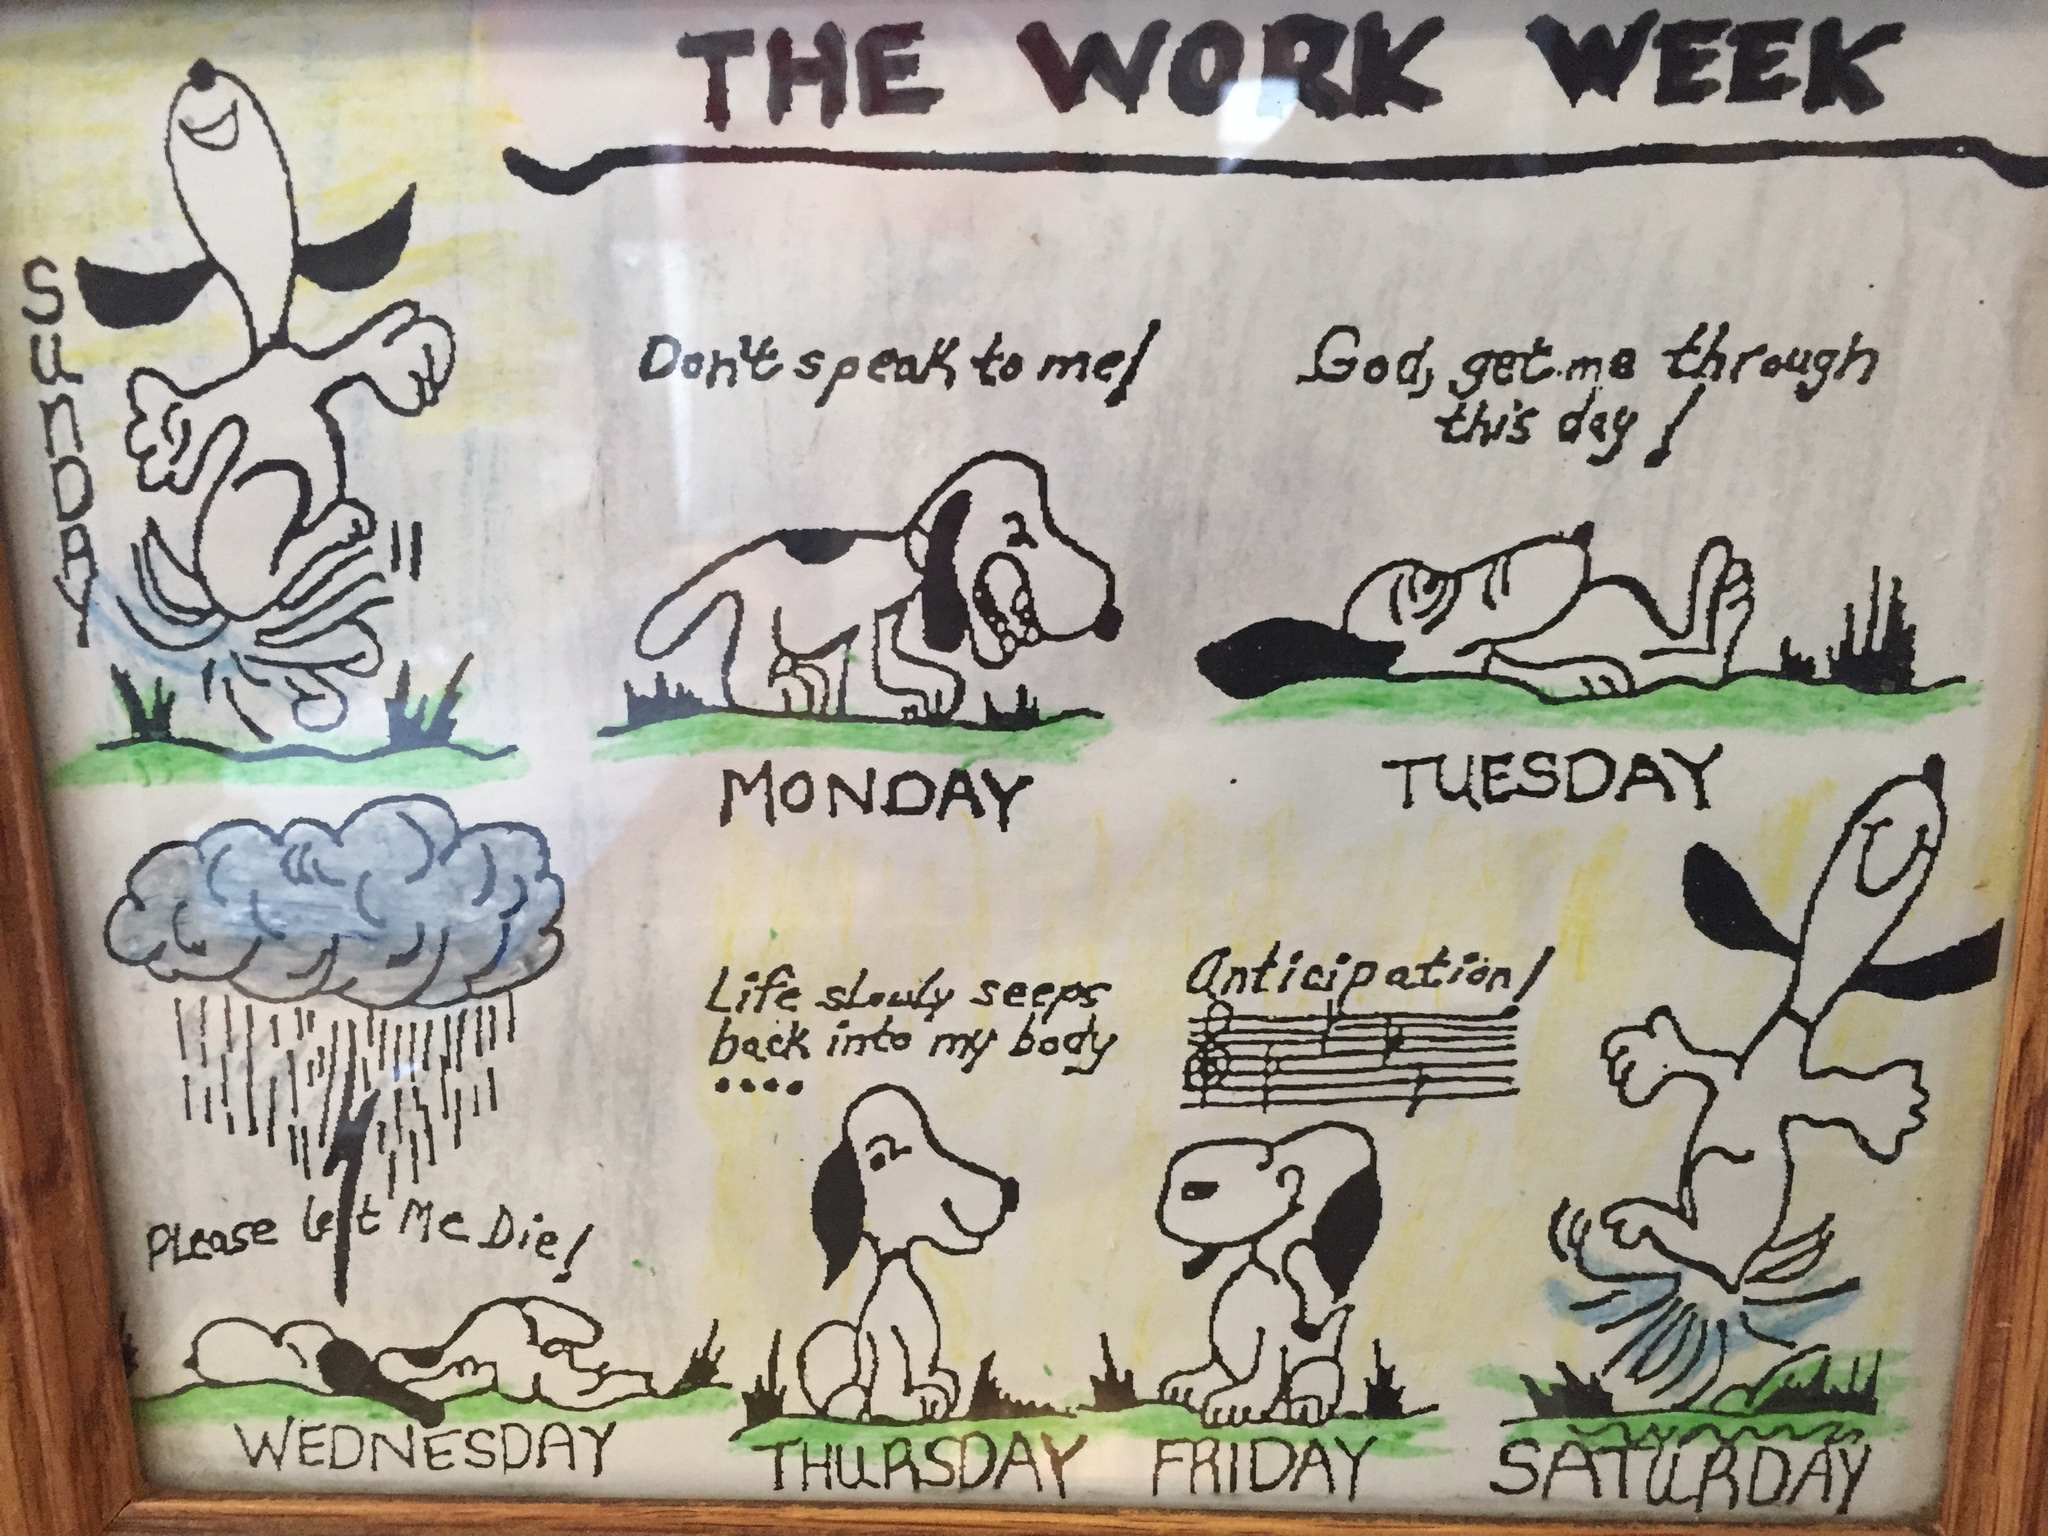 THE WORK WEEK
SunDay
Don't speak to me!
MONDAY
God, get me through
this day!
TUESDAY
PLease let Me Die!
WEDNESDAY
Life slowly seeps
back into my body
....
THURSDAY
Anticipation!
FRIDAY
SATURDAY